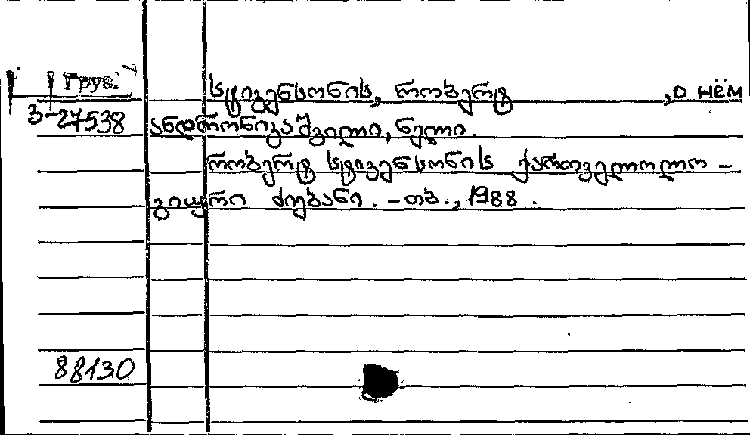 Груз.
სტივენსონის, რობერტ, о нём
3-27538
ანდრონიკაშვილი, ნელი.
რობერტ სტივენსონის ქართველოლო-
გიური ძიებანი. - თბ., 1988.
88130